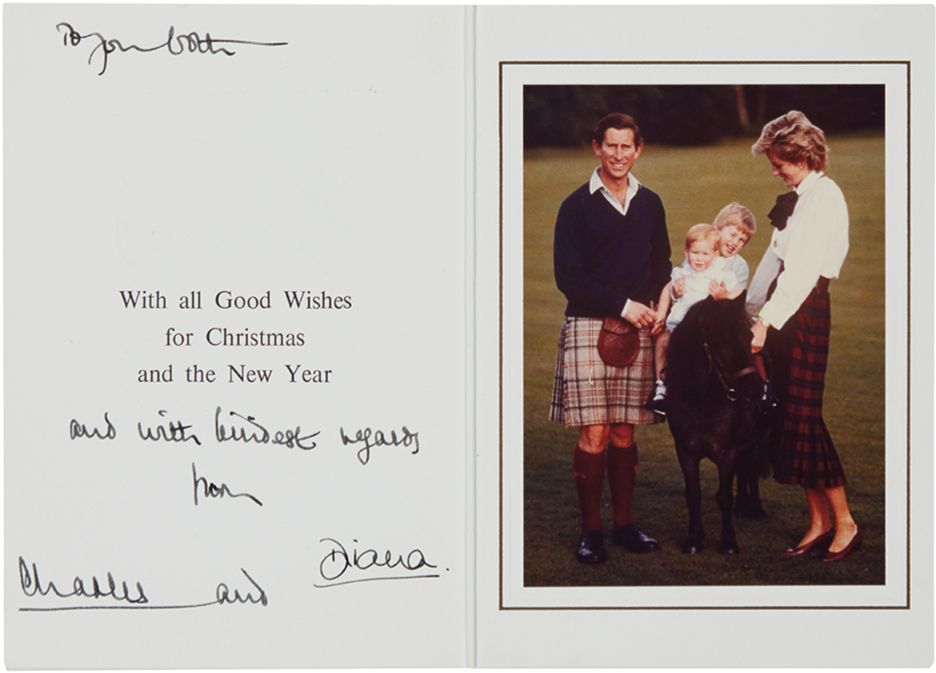 To
With all Good Wishes
for Christmas
and the New Year
and with kindest regards
from
Charles and Diana.